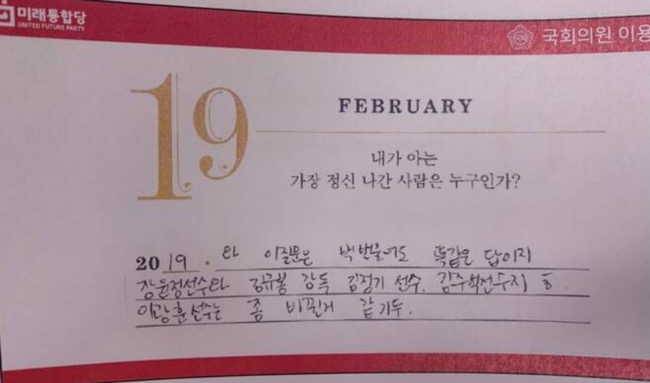 미래통합당
UNITED FUTURE PARTY
국회의원 이용
19
FEBRUARY
내가 아는
가장 정신 나간 사람은 누구인가?
2019. 와 이질문은 백번물어도 똑같은 답이지
장윤정선수와 김규봉 감독 김정기 선수. 김주석선수지 ㅎ.
이광훈선수는 좀 바뀐거 같기두.